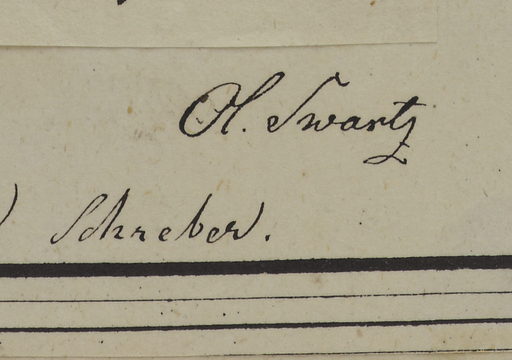 Ol. Swartz
Schreber.